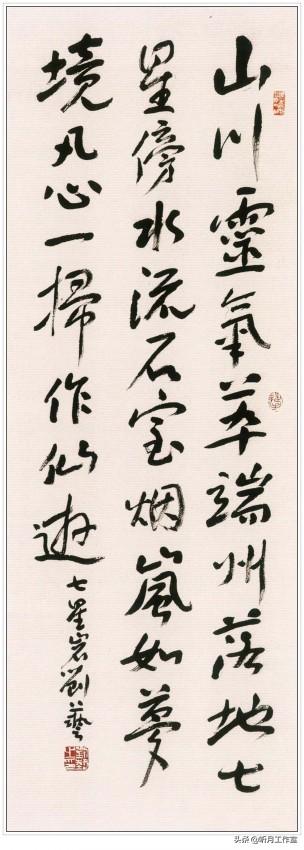 山川靈氣萃端州落地七
星傍水流石室烟嵐如夢
境凡心一掃作仙遊
七星岩劉藝
头条@听月工作室